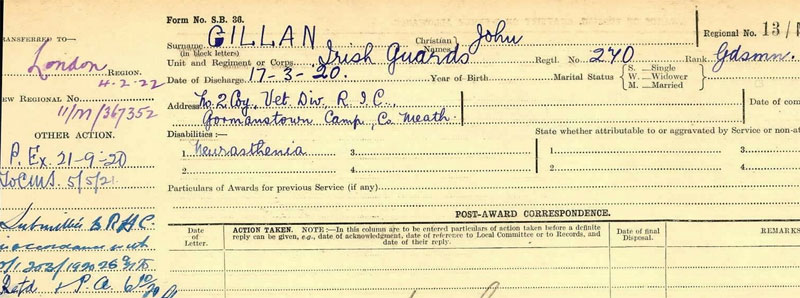 Form No. S.B. 36.
TRANSFERRED TO—
London
REGION.
4-2-22
NEW REGIONAL No.
11/M/367352
OTHER ACTION.
P. Ex. 21-9-20
5/5/21
Submitted
Surname GILLAN Christian Names John
(in block letters)
Regional No. 13/
Unit and Regiment or Corps Irish Guards Regtl. No. 240 Rank Gdsmn.
Date of Discharge 17-3-20. Year of Birth Marital Status S. —Single W.—Widower M.—Married
Address No. 2 Coy. Vet. Div. R. I. C.,
Gormanstown Camp, Co Meath.
Date of com
Disabilities:—
State whether attributable to or aggravated by Service or non-at
1. Neurasthenia 3. 1. 3.
2. 4. 2. 4.
Particulars of Awards for previous Service (if any)
POST-AWARD CORRESPONDENCE.
Date of Letter.
ACTION TAKEN. NOTE:—In this column are to be entered particulars of action taken before a definite
reply can be given, e.g., date of acknowledgment, date of reference to Local Committee or to Records, and
date of their reply.
Date of final Disposal.
REMARKS